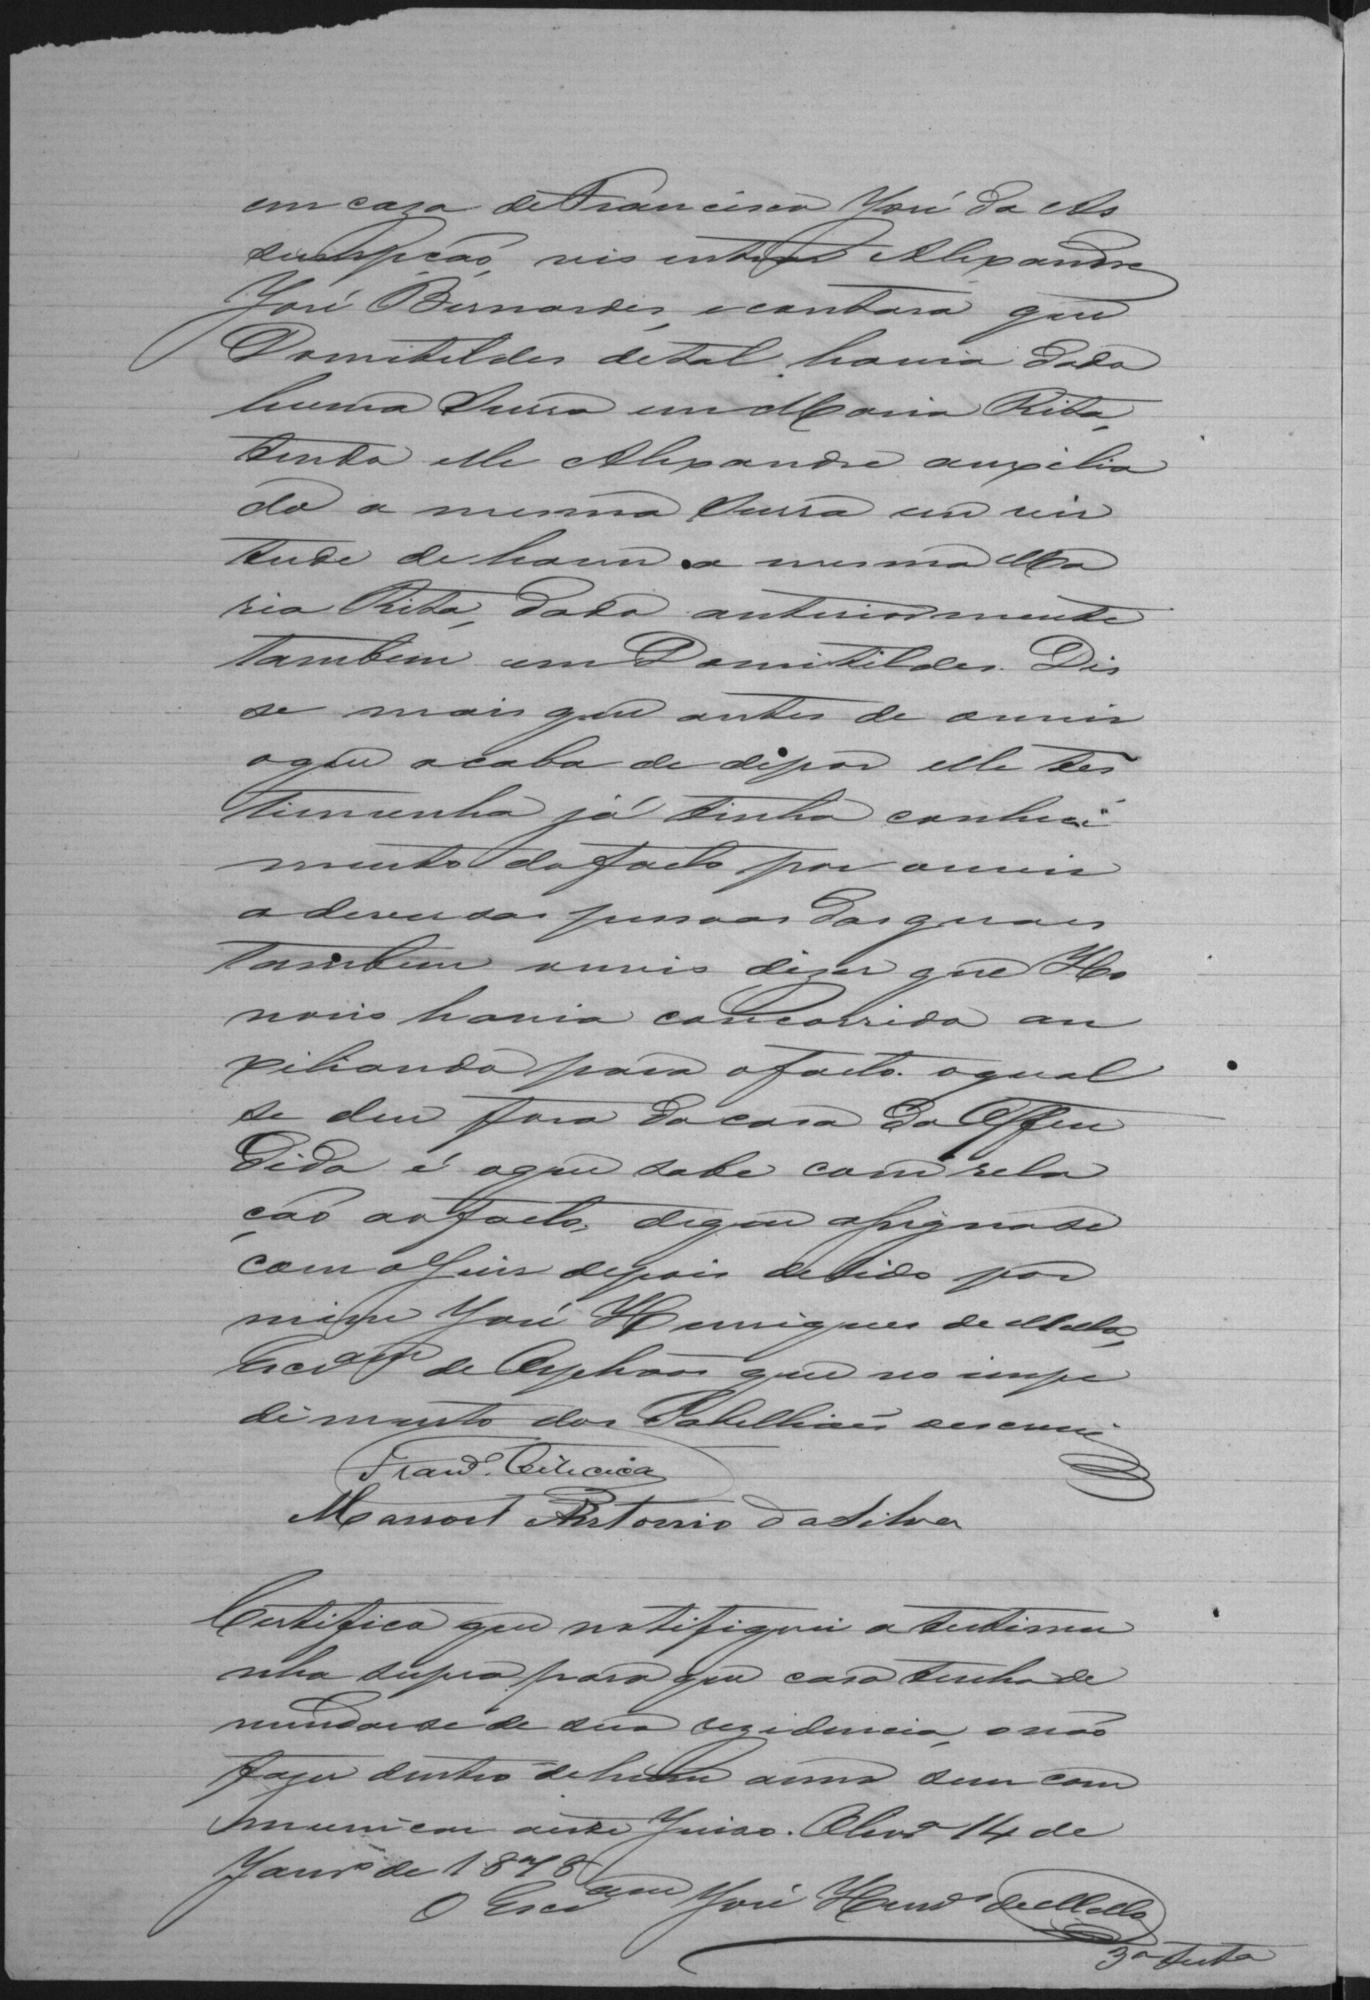 em caza de Francisco José da As
sumpção, nis entrou Alexandre
José Bernardes, e contara que
Domitildes de tal havia dado
huma surra em Maria Rita,
tendo elle Alexandre auxilia
do a mesma surra em vir
tude de haver a mesma Ma
ria Rita, dado anteriormente
tambem em Domitildes. Dis
se mais que antes de ouvir
o que acaba de depor elle tes
timunha já tinha conheci
mento do facto por ouvir
a deversas pessoas das quaes
tambem ouvio dizer que Ho
norio havia concorrido au
xiliando para o facto. o qual
se deu fora da casa da Offen
dida é o que sabe com rela
ção ao facto, digo assigna se
com o Juis depois de lido por
mim José Henriques de Mello,
Escram de Orphãos que no impe
dimento dos Tabelliães escrevi
Franco
Manoel Antonio da Silva
Certifico que notifiquei a testimu
nha supra para que caso tenha de
mudarse de sua rezidencia, o não
faça dentro de hum anno sem com
municar a este Juiso. 14 de
Janro de 1878
O Escram José Henrs de Mello
3a testa